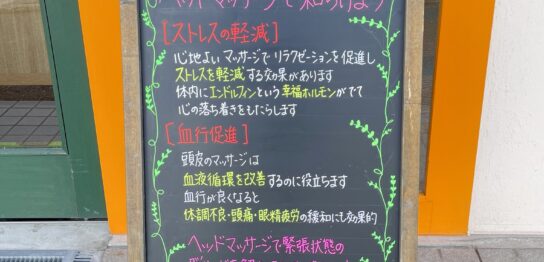 ヘッドマッサージで和らげよう
[ストレスの軽減]
心地よいマッサージでリラクゼーションを促進し
ストレスを軽減する効果があります
体内にエンドルフィンという幸福ホルモンがでて
心の落ち着きをもたらします
[血行促進]
頭皮のマッサージは
血液循環を改善するのに役立ちます
血行が良くなると
体調不良・頭痛・眼精疲労の緩和にも効果的
ヘッドマッサージで緊張状態の